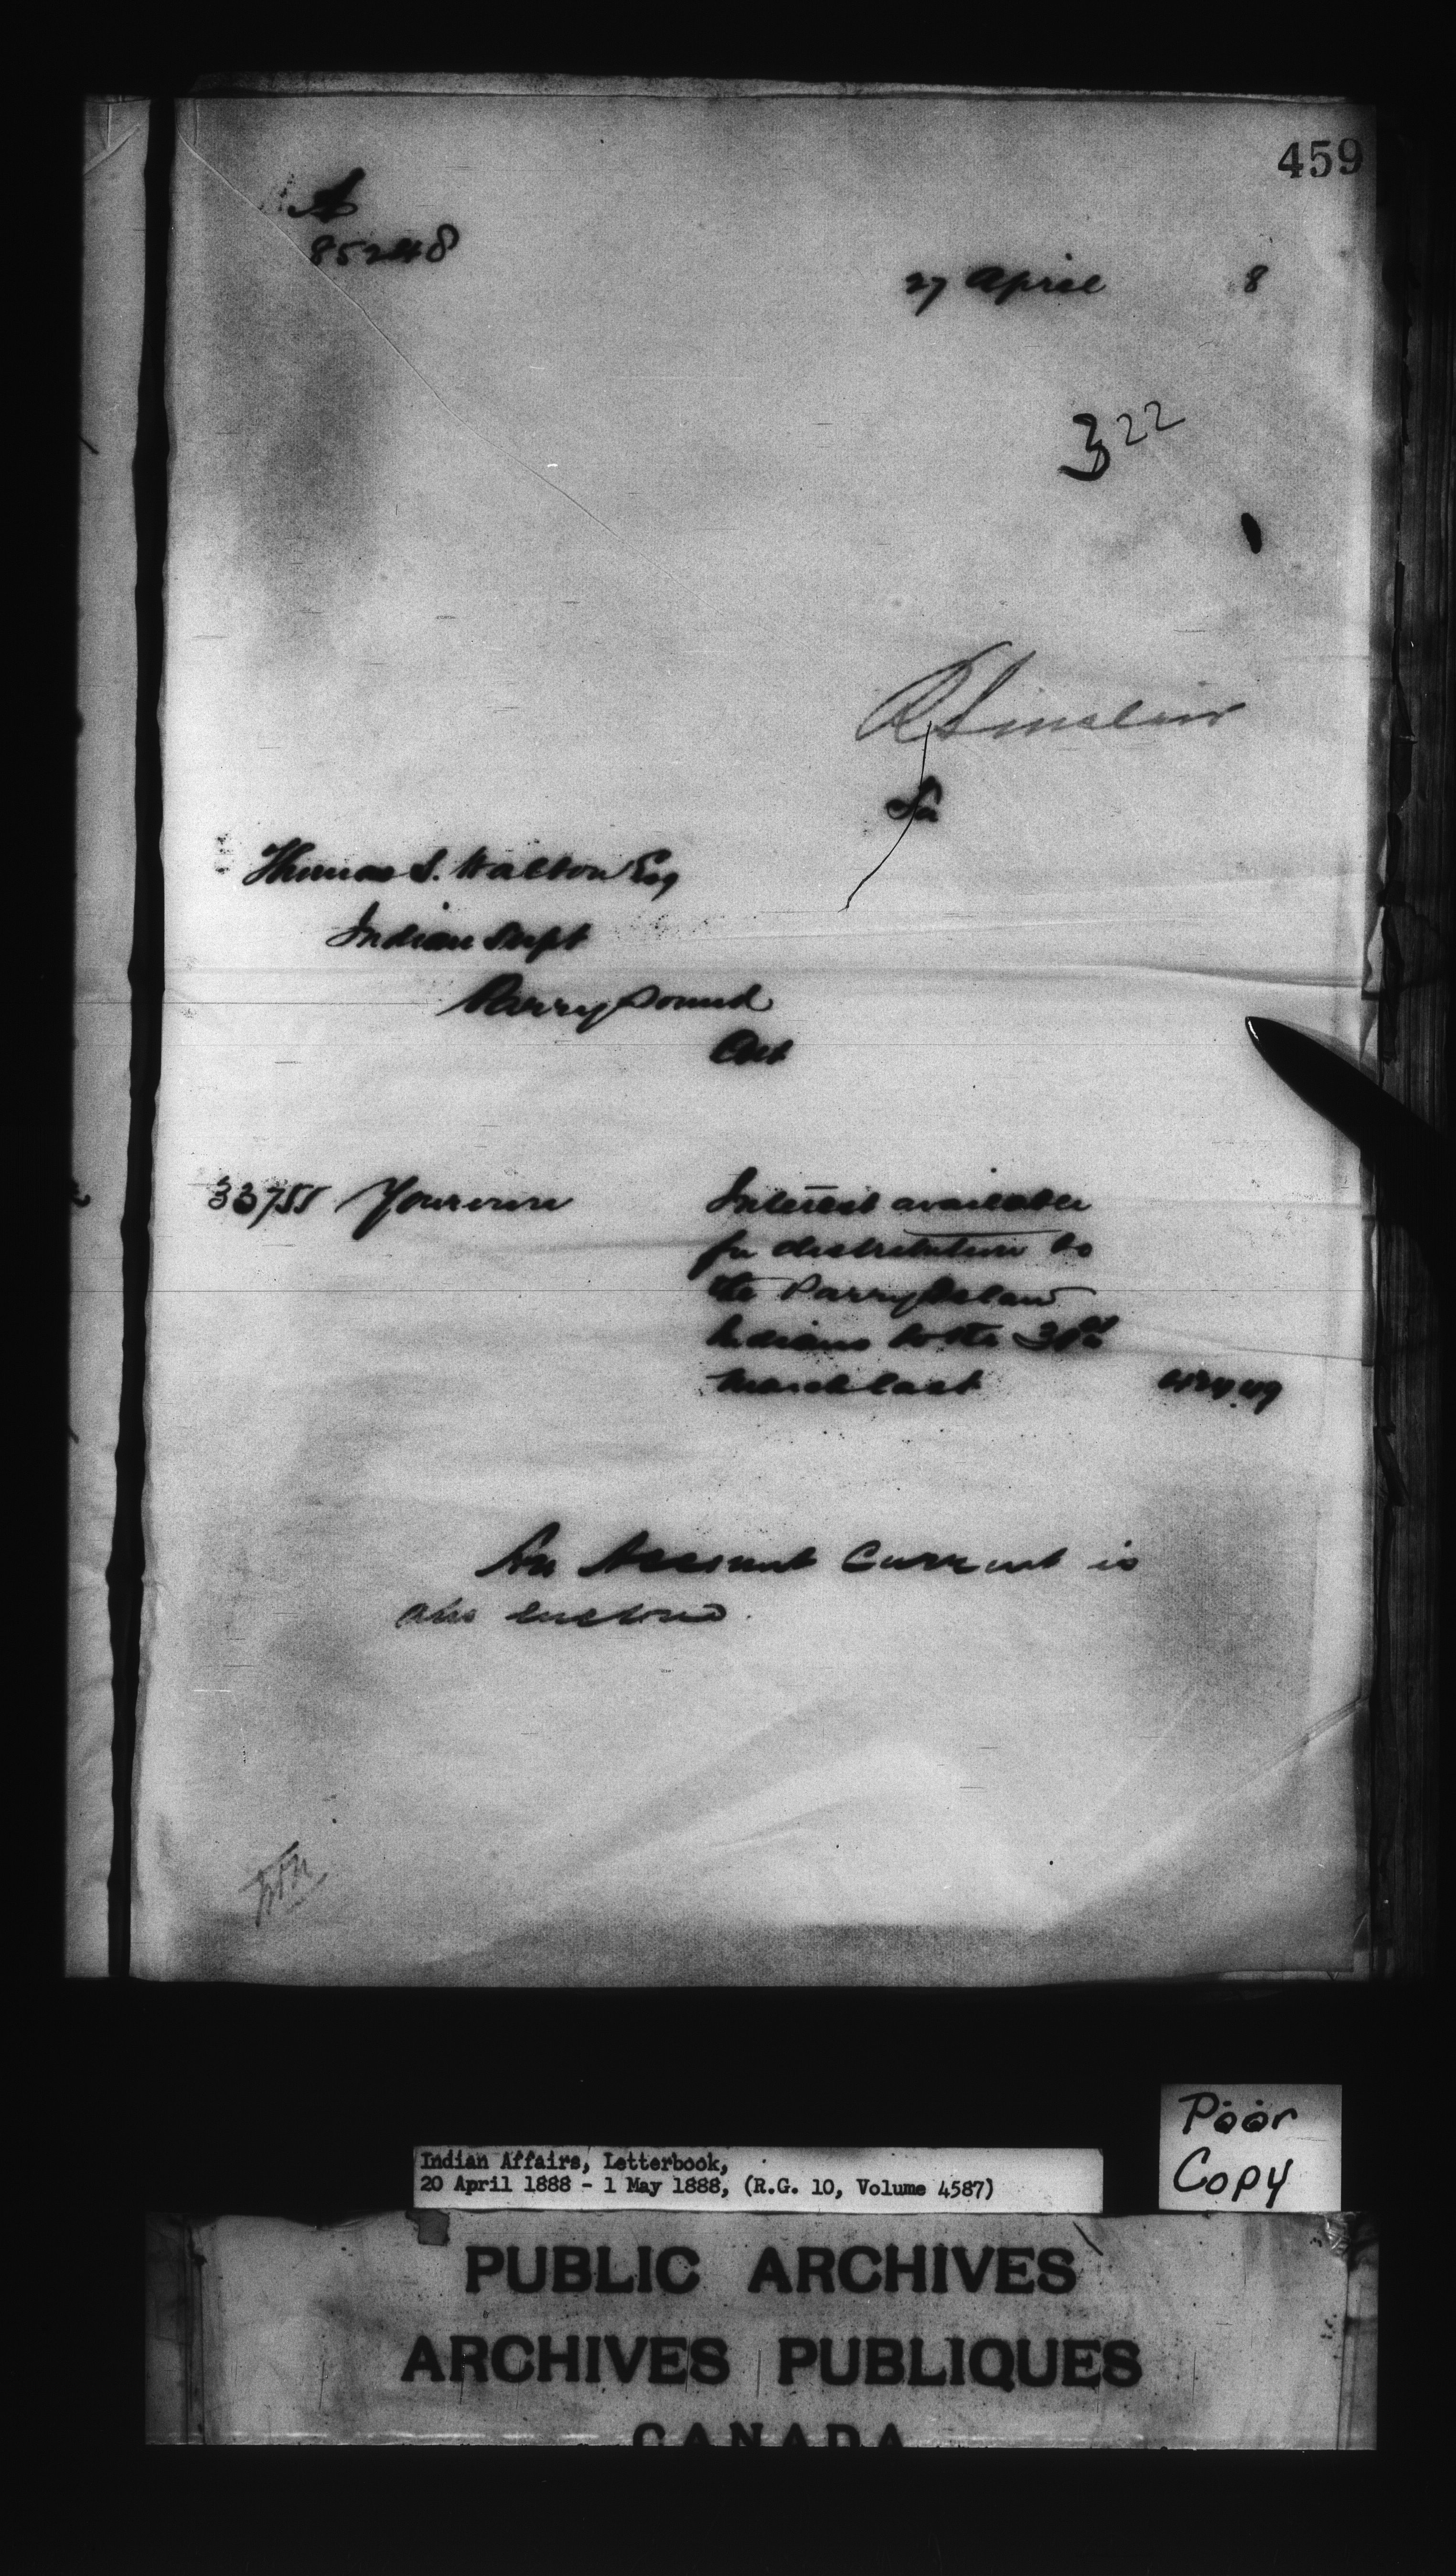 459
A
85248
27 April 8
322
R Sinclair
Thomas S. Walton Esq
Indian Supt
Parry Sound
Ont
33755 Yourown Interest available
for distribution to
the Parry Island
Indians to the 31st
March last
An Account Current is
also enclosed.
Poor
Copy
Indian Affairs, Letterbook,
20 April 1888 - 1 May 1888, (R.G. 10, Volume 4587)
PUBLIC ARCHIVES
ARCHIVES PUBLIQUES
CANADA